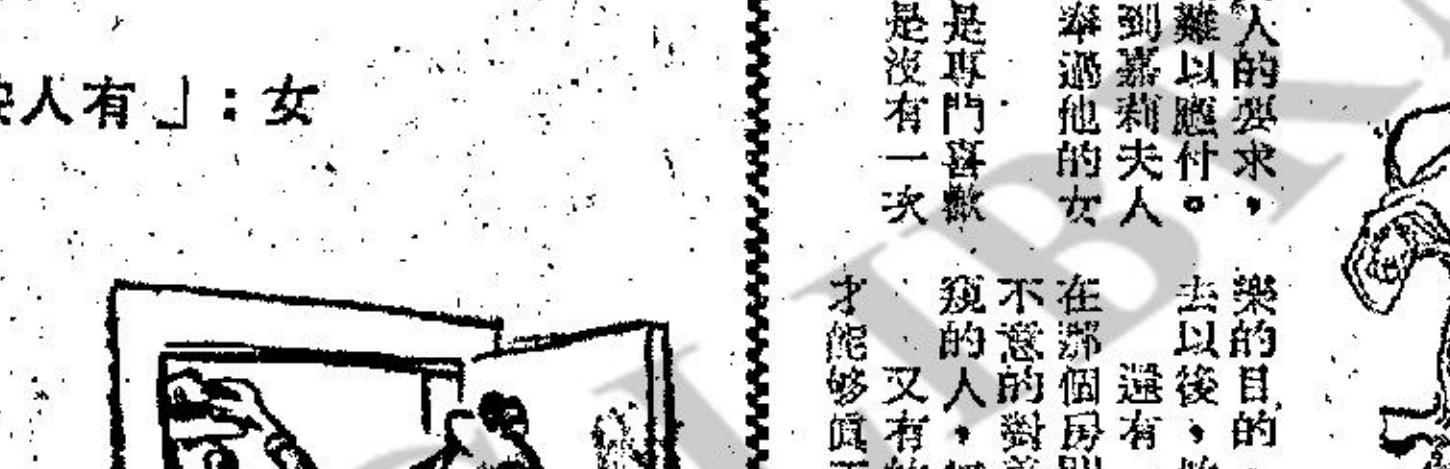 人的要求，
難以應付。
到嘉莉夫人
奉過他的女
是專門喜歡
是沒有一次
樂的目的，
去以後，
還有
在那個房間
不意的對
窺的人，
又有
才能够眞
女：「有人